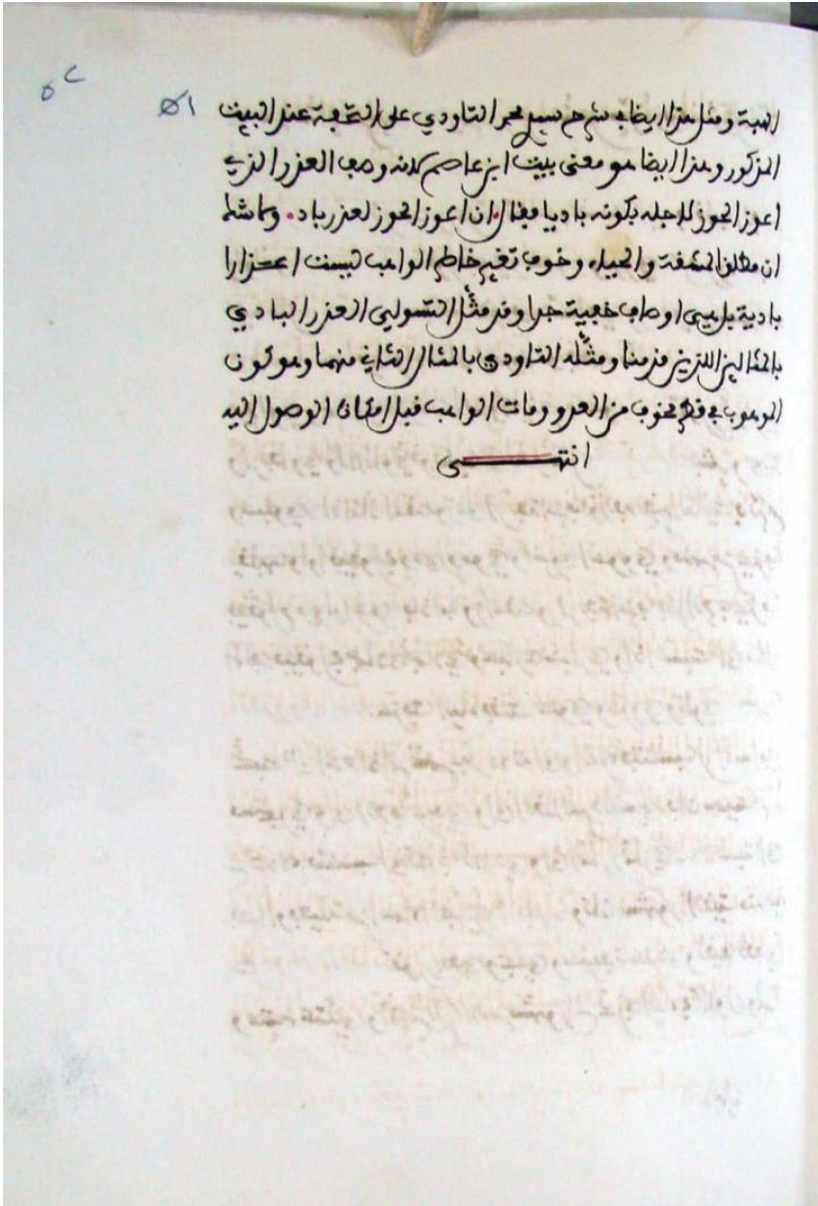 ٥١
الهبة ومثل هذا ايضا في شرح سيدي محمد التاودي على التحفة عند البيت
المذكور وهذا ايضا هو معنى بيت ابن عاصم لانه وصف العذر الذي
اعوز الحوز لاجله بكونه باديا فقال. ان اعوز الحوز لعذر باد. وحاشا
ان مطلق المشقة والحياء وخوف تغير خاطر الواهب ليست اعذارا
بادية بل هي اوصاف خفية جدا وقد مثل التسولي العذر البادي
بالمثالين اللذين قدمنا ومثله التاودي بالمثال الثاني منهما وهو كون
الموهوب في قطر مخوف من العدو ومات الواهب قبل امكان الوصول اليه
انتهى